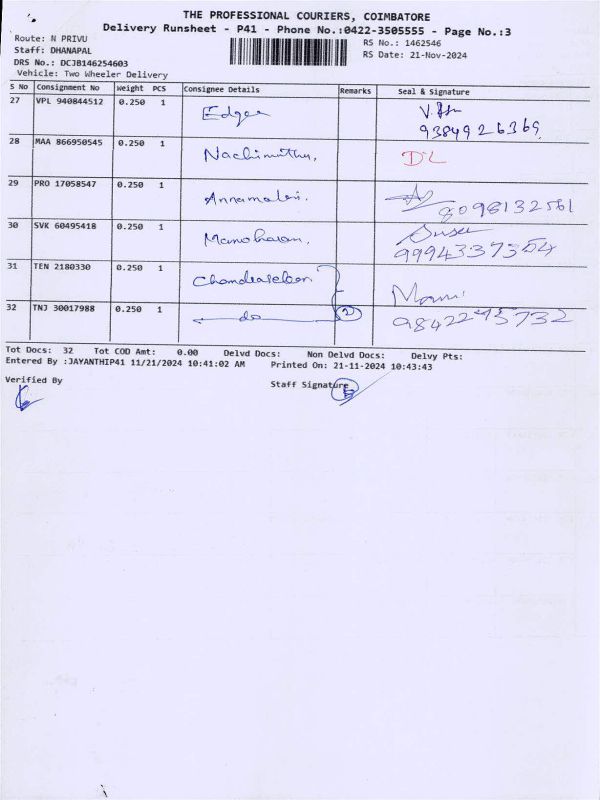 THE PROFESSIONAL COURIERS, COIMBATORE
Delivery Runsheet - P41 - Phone No.:0422-3505555 - Page No.:3
Route: N PRIVU
RS No.: 1462546
Staff: DHANAPAL
RS Date: 21-Nov-2024
DRS No.: DCJB146254603
Vehicle: Two Wheeler Delivery
S No Consignment No Weight PCS Consignee Details Remarks Seal & Signature
27 VPL 940844512 0.250 1 Edgee
9384926369
28 MAA 866950545 0.250 1 Nachimuthu. DL
29 PRO 17058547 0.250 1 Annamalai. 8098132561
30 SVK 60495418 0.250 1 Manoharan.
9994337564
31 TEN 2180330 0.250 1 Chandrasekar
Mani
32 TNJ 30017988 0.250 1 do 2 9842295732
Tot Docs: 32 Tot COD Amt: 0.00 Delvd Docs: Non Delvd Docs: Delvy Pts:
Entered By :JAYANTHIP41 11/21/2024 10:41:02 AM Printed On: 21-11-2024 10:43:43
Verified By
Staff Signature